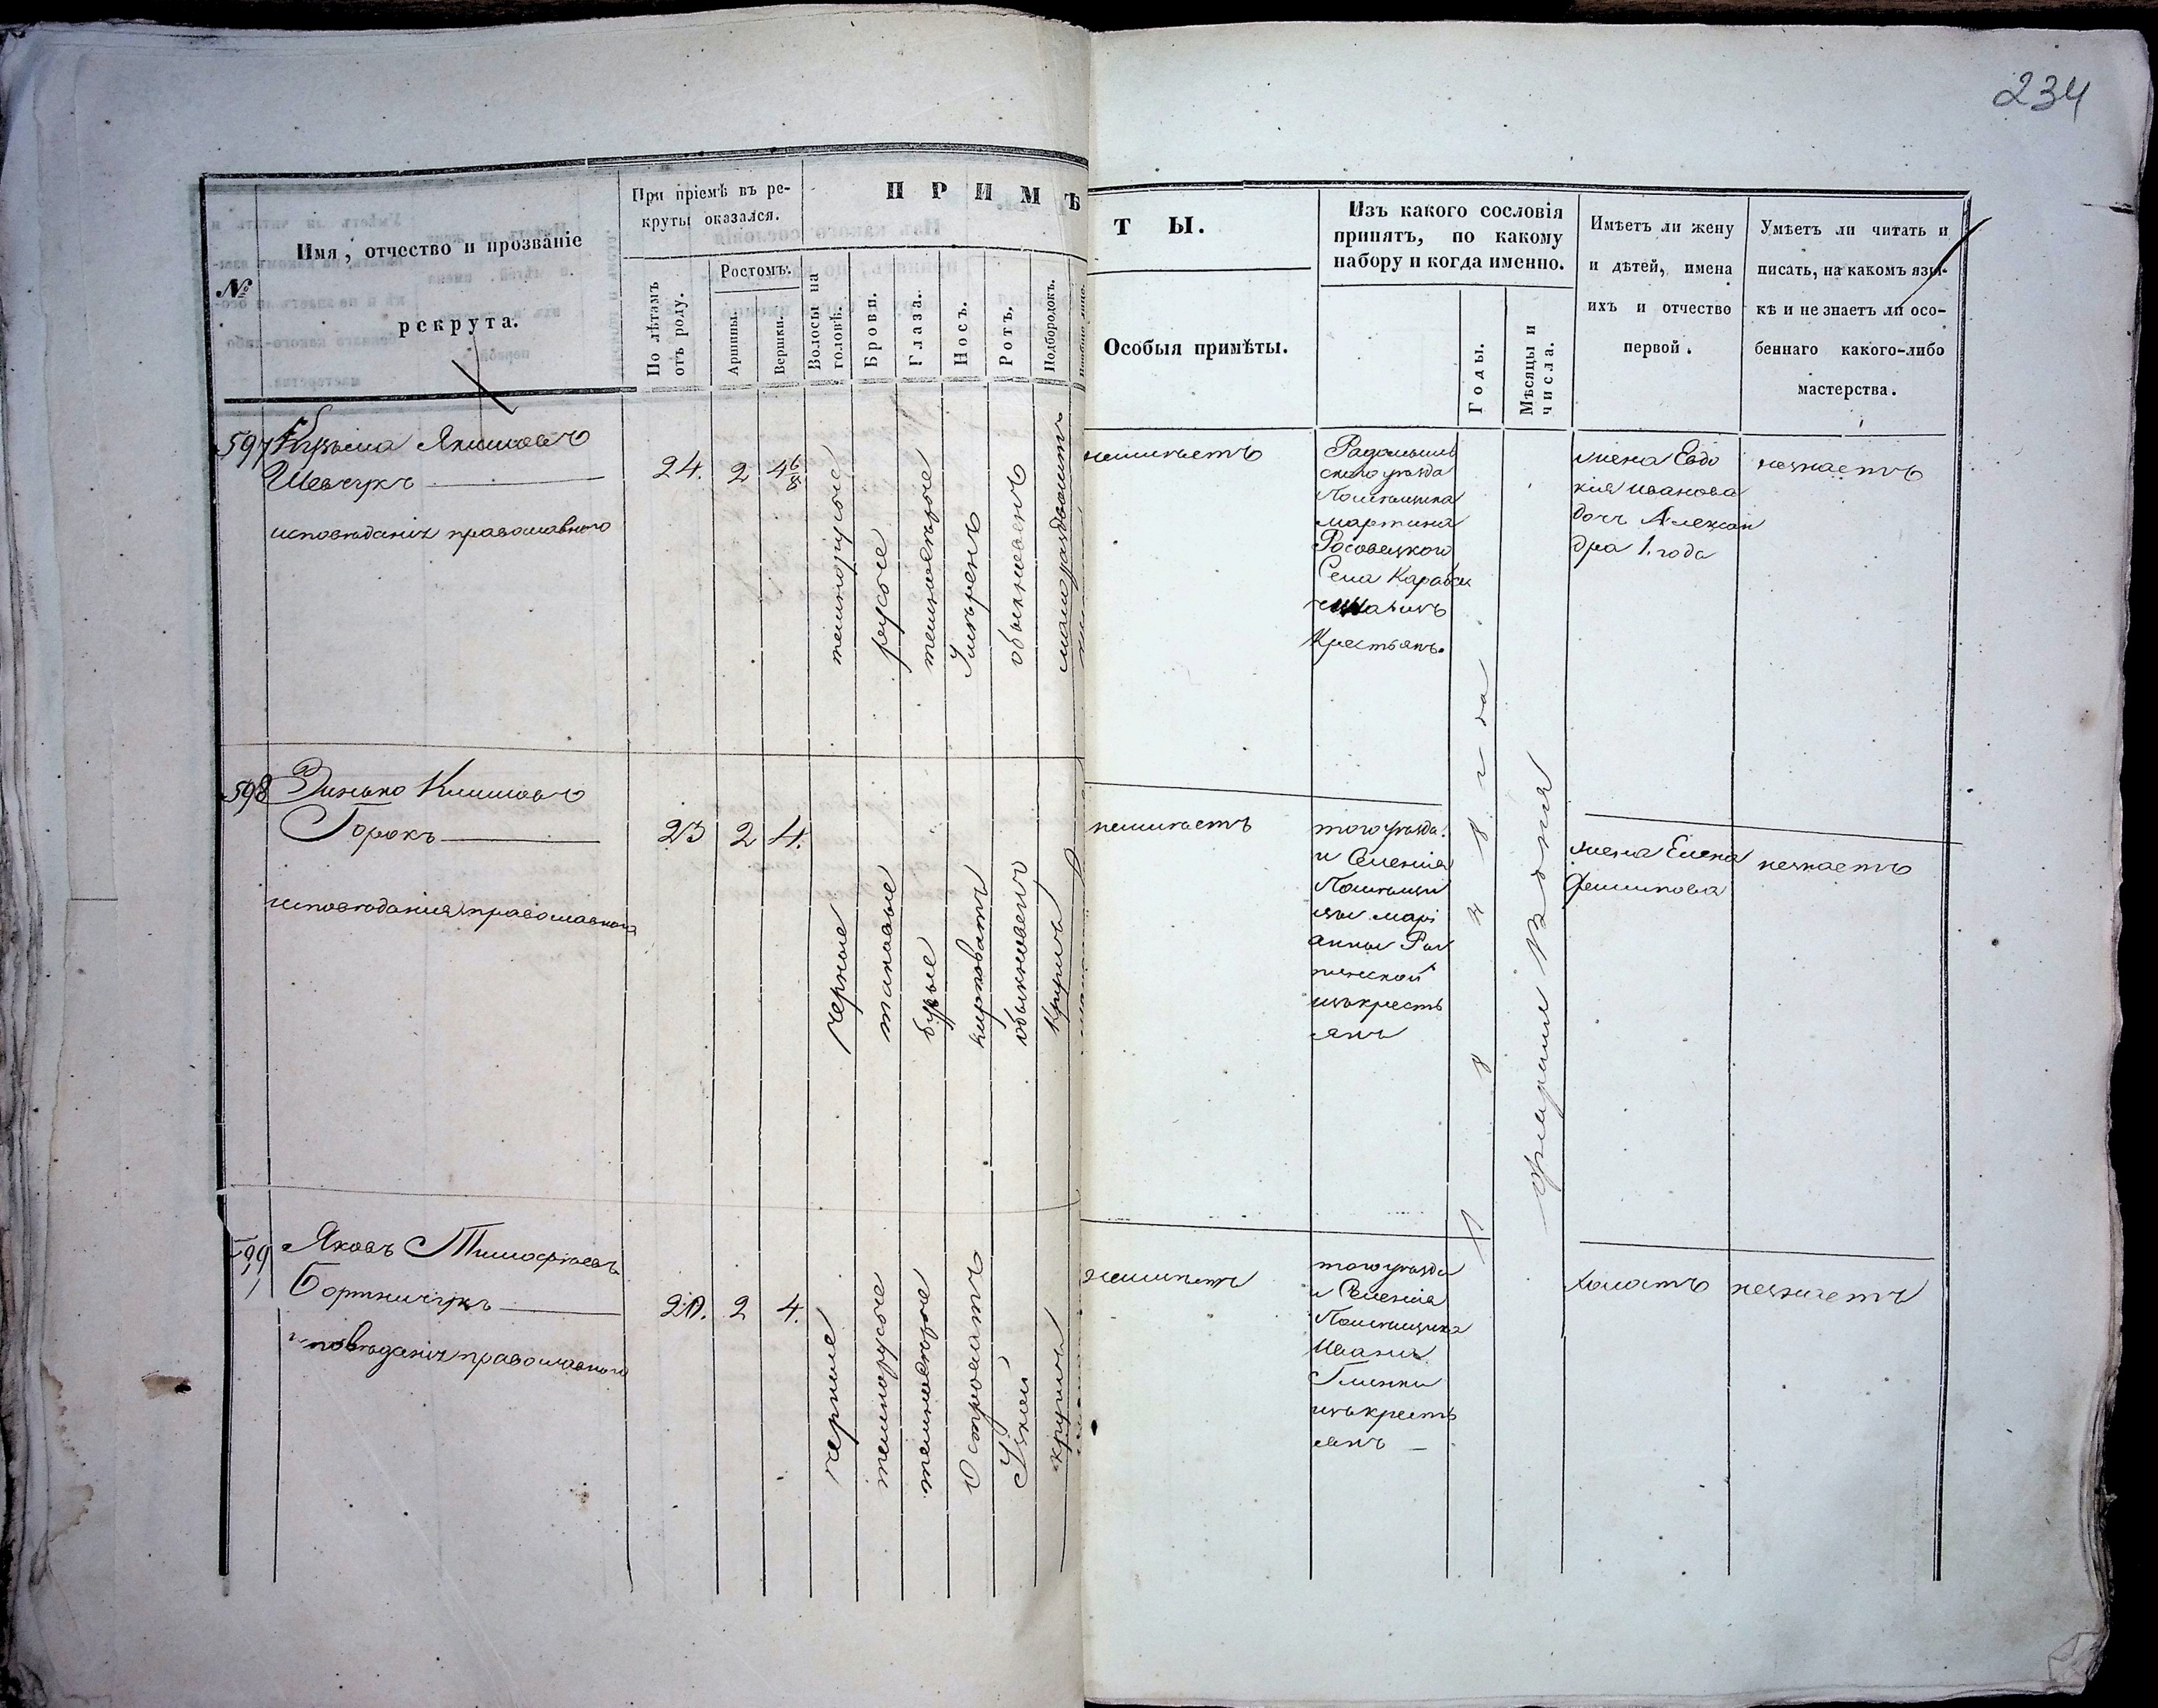 234
№
Имя, отчество и прозваніе
рекрута.
При пріемѣ въ ре-
круты оказался.
По лѣтамъ
отъ роду.
Ростомъ.
Аршины.
Вершки.
П Р И М Ѣ
Волосы на
головѣ.
Брови.
Глаза.
Носъ.
Ротъ.
Подбородокъ.
Т Ы.
Особыя примѣты.
Изъ какого сословія
принятъ, по какому
набору и когда именно.
Годы.
Мѣсяцы и
числа.
Имѣетъ ли жену
и дѣтей, имена
ихъ и отчество
первой.
Умѣетъ ли читать и
писать, на какомъ язы-
кѣ и не знаетъ ли осо-
беннаго какого-либо
мастерства.
597
Шевчукъ
исповѣданія православного
24. 2 4 6/8
темнорусые
русые
обыкновенъ
неимѣетъ
уѣзда
Помѣщика
мартина
Села
Крестьянъ.
жена Евдо
кия иванова
дочь Алексан
дра 1. года
незнаетъ
598
Зинько Климовъ
Горокъ
исповѣданія православного
23 2 4.
черные
таковые
бурые
обыкновенъ
круглъ
неимѣетъ
того уѣзда
и Селенія
Помѣщи
цы мари
анны
изъ кресть
янъ
жена Елена
незнаетъ
599
Яковъ Тимофѣевъ
Бортничукъ
исповѣданія православного
2 4.
черные
темнорусые
круглъ
неимѣетъ
того уѣзда
и Селенія
Помѣщика
Ивана
Глинки
изъ кресть
янъ
холостъ
незнаетъ
года